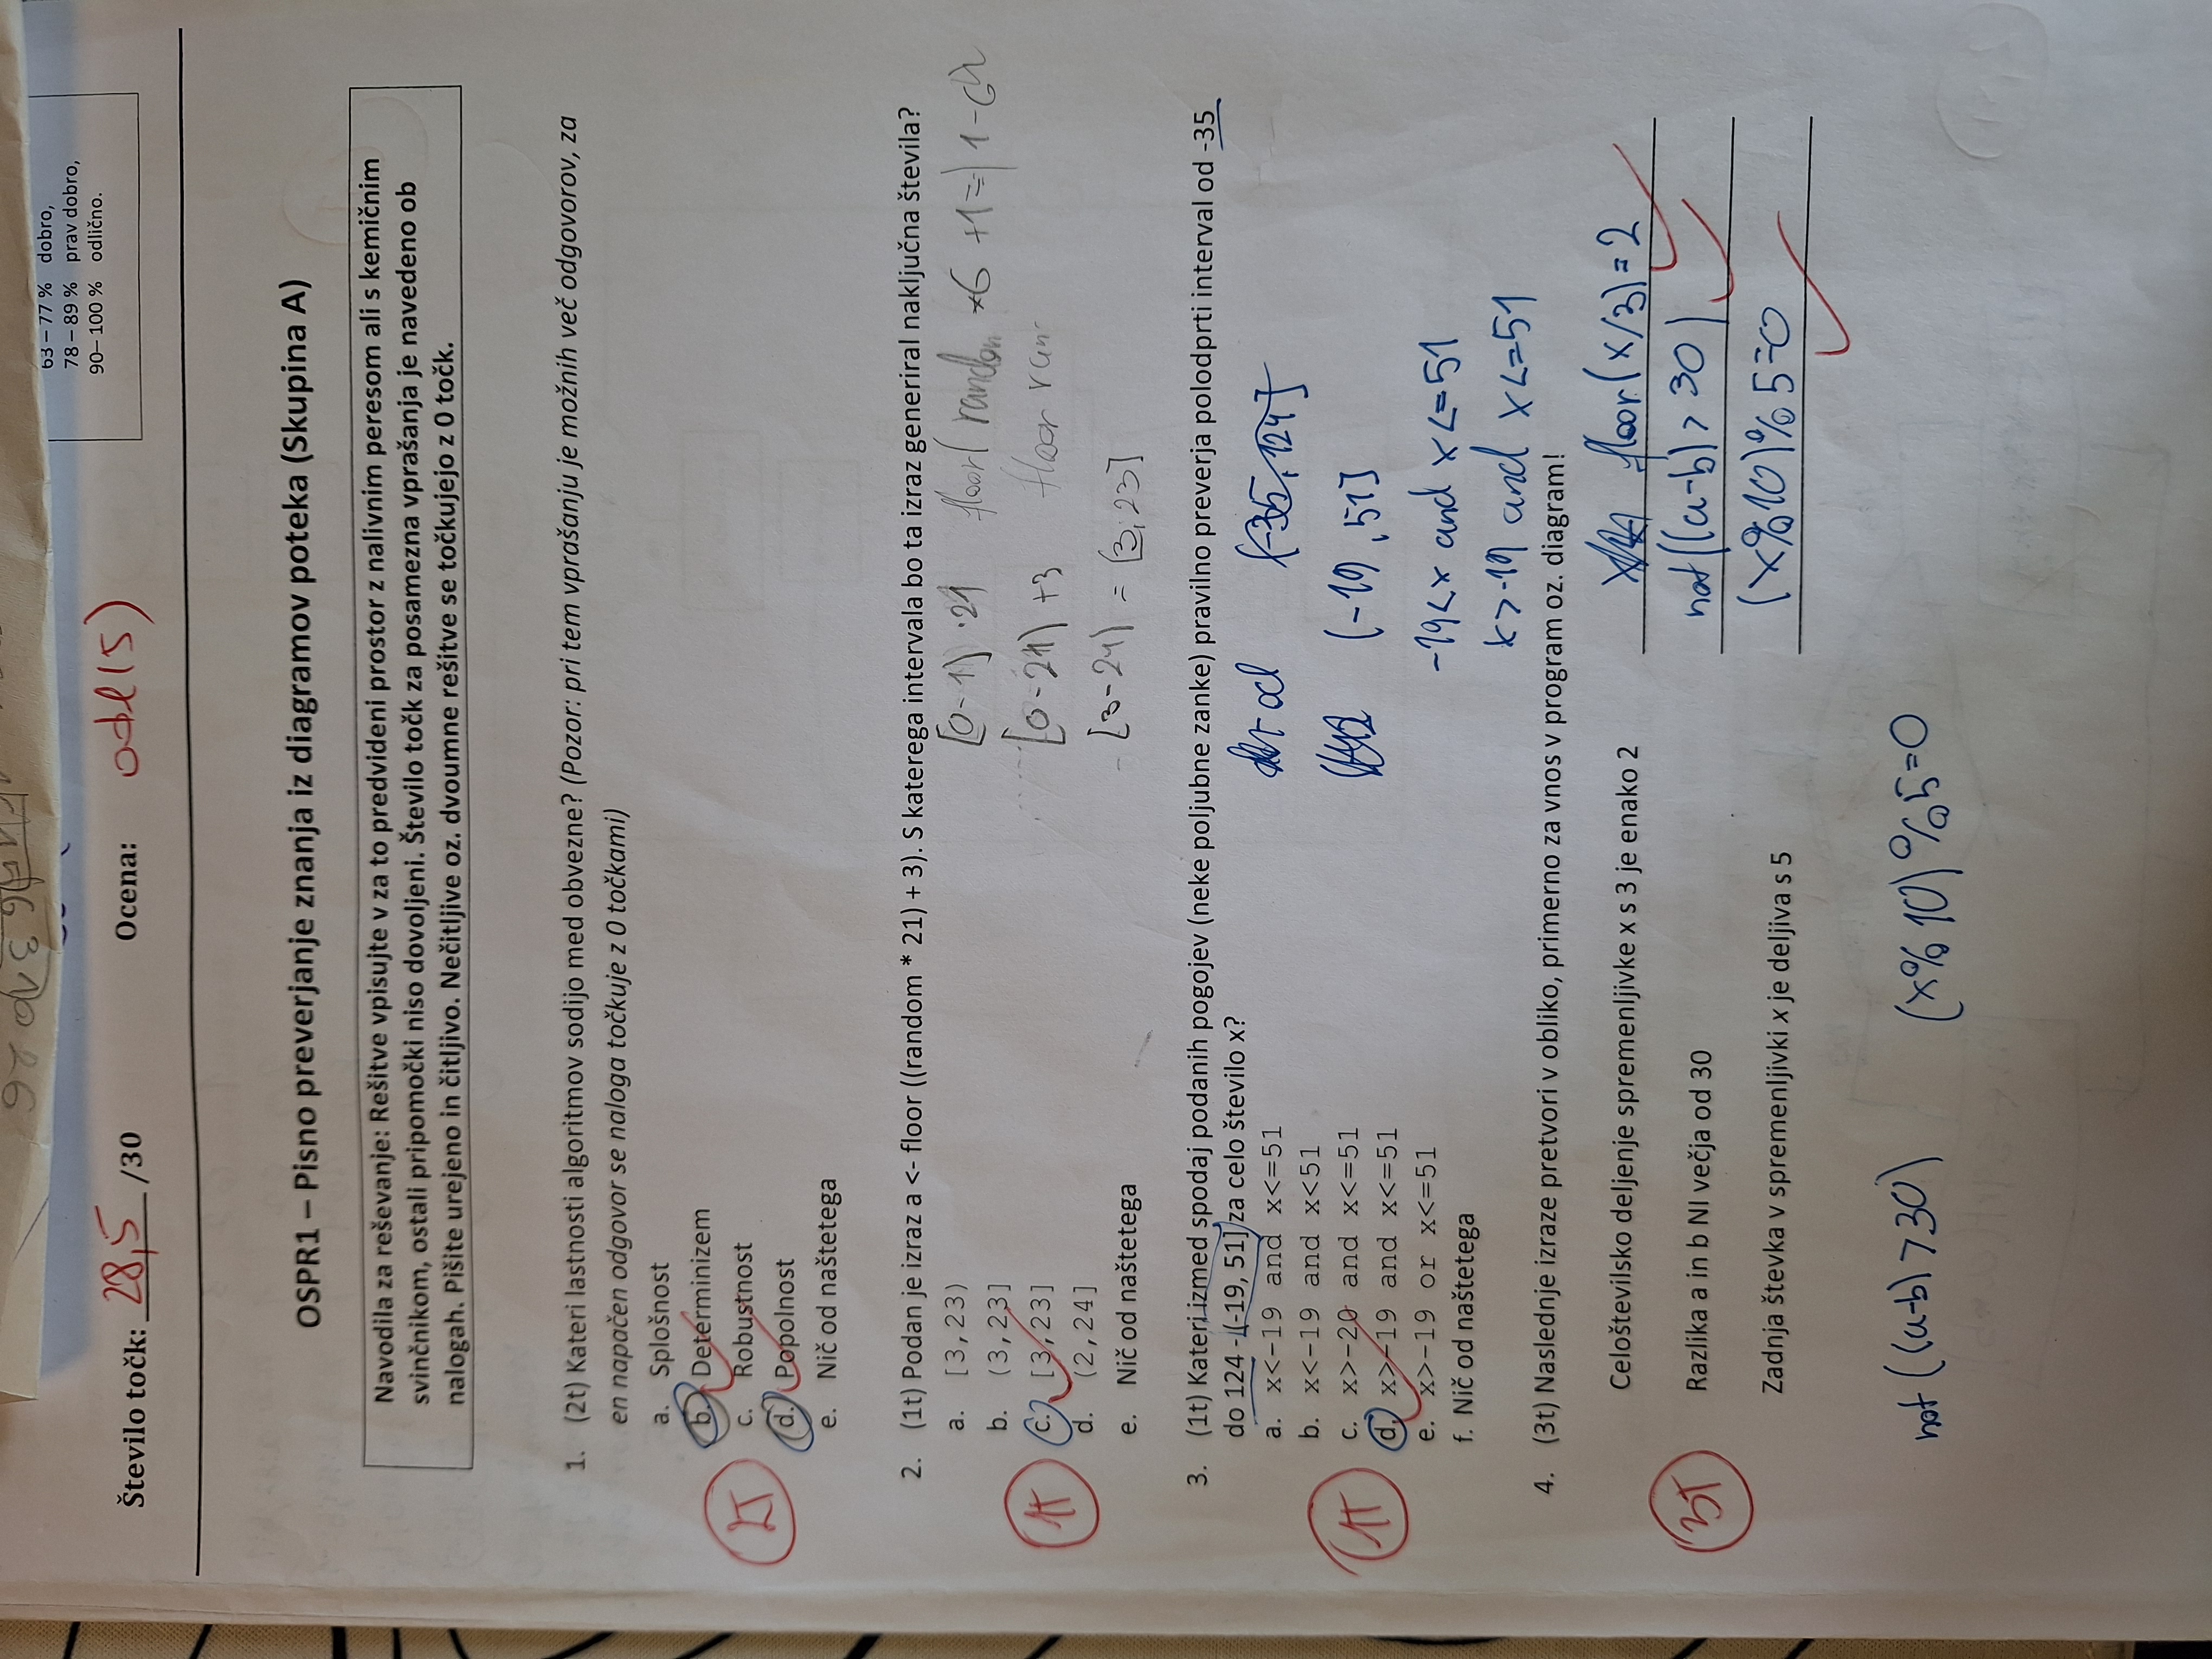 63 – 77 % dobro,
78 – 89 % prav dobro,
90– 100 % odlično.
Število točk: 28,5 /30 Ocena: odl(5)
OSPR1 – Pisno preverjanje znanja iz diagramov poteka (Skupina A)
Navodila za reševanje: Rešitve vpisujte v za to predvideni prostor z nalivnim peresom ali s kemičnim
svinčnikom, ostali pripomočki niso dovoljeni. Število točk za posamezna vprašanja je navedeno ob
nalogah. Pišite urejeno in čitljivo. Nečitljive oz. dvoumne rešitve se točkujejo z 0 točk.
1. (2t) Kateri lastnosti algoritmov sodijo med obvezne? (Pozor: pri tem vprašanju je možnih več odgovorov, za
en napačen odgovor se naloga točkuje z 0 točkami)
a. Splošnost
b. Determinizem
2T c. Robustnost
d. Popolnost
e. Nič od naštetega
2. (1t) Podan je izraz a <- floor ((random * 21) + 3). S katerega intervala bo ta izraz generiral naključna števila?
a. [3,23) [0-1) ·21 floor( random *6 +1=
b. (3,23]
1T c. [3,23] [0-21) +3 floor ran
d. (2,24]
e. Nič od naštetega [3-24) = [3,23]
3. (1t) Kateri izmed spodaj podanih pogojev (neke poljubne zanke) pravilno preverja polodprti interval od -35
do 124 - (-19, 51] za celo število x?
a. x<-19 and x<=51 od (-35,124]
b. x<-19 and x<51
1T c. x>-20 and x<=51 (-19,51]
d. x>-19 and x<=51
e. x>-19 or x<=51 -19<x and x<=51
f. Nič od naštetega
x>-19 and x<=51
4. (3t) Naslednje izraze pretvori v obliko, primerno za vnos v program oz. diagram!
Celoštevilsko deljenje spremenljivke x s 3 je enako 2 floor(x/3)=2
3T Razlika a in b NI večja od 30 not((a-b)>30)
Zadnja števka v spremenljivki x je deljiva s 5 (x%10)%5=0
not((a-b)>30) (x%10)%5=0